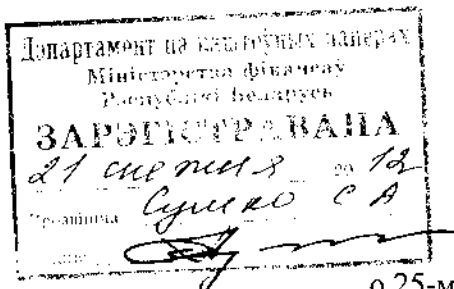 Дэпартамент па каштоўных паперах
Міністэрства фінансаў
Рэспублікі Беларусь
ЗАРЭГІСТРАВАНА
21 снежня 20 12
Сушко С А
о 25-м